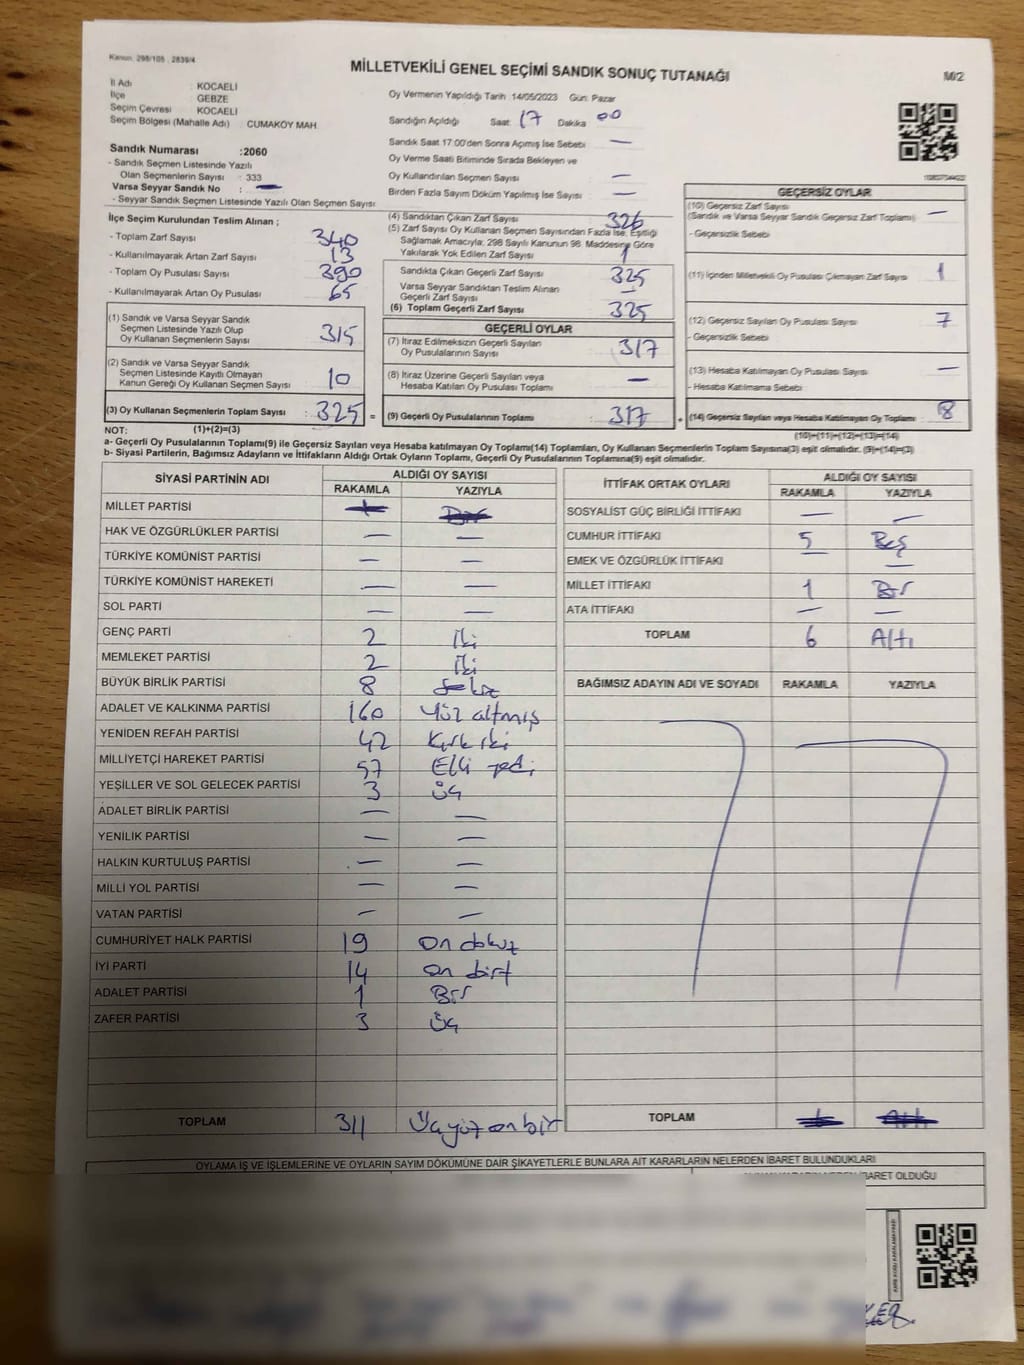 Kanun: 298/105 , 2839/4
MİLLETVEKİLİ GENEL SEÇİMİ SANDIK SONUÇ TUTANAĞI
M/2
İl Adı : KOCAELİ
İlçe : GEBZE
Seçim Çevresi : KOCAELİ
Seçim Bölgesi (Mahalle Adı) : CUMAKÖY MAH.
Oy Vermenin Yapıldığı Tarih: 14/05/2023 Gün: Pazar
Sandığın Açıldığı Saat: 17 Dakika 00
Sandık Numarası :2060
- Sandık Seçmen Listesinde Yazılı
Olan Seçmenlerin Sayısı : 333
Varsa Seyyar Sandık No : —
- Seyyar Sandık Seçmen Listesinde Yazılı Olan Seçmen Sayısı:
Sandık Saat 17:00'den Sonra Açımış İse Sebebi —
Oy Verme Saati Bitiminde Sırada Bekleyen ve
Oy Kullandırılan Seçmen Sayısı —
Birden Fazla Sayım Döküm Yapılmış İse Sayısı —
İlçe Seçim Kurulundan Teslim Alınan ;
- Toplam Zarf Sayısı 340
- Kullanılmayarak Artan Zarf Sayısı 13
- Toplam Oy Pusulası Sayısı 390
- Kullanılmayarak Artan Oy Pusulası 65
(1) Sandık ve Varsa Seyyar Sandık
Seçmen Listesinde Yazılı Olup
Oy Kullanan Seçmenlerin Sayısı 315
(2) Sandık ve Varsa Seyyar Sandık
Seçmen Listesinde Kayıtlı Olmayan
Kanun Gereği Oy Kullanan Seçmen Sayısı 10
(3) Oy Kullanan Seçmenlerin Toplam Sayısı : 325 =
(4) Sandıktan Çıkan Zarf Sayısı 326
(5) Zarf Sayısı Oy Kullanan Seçmen Sayısından Fazla İse, Eşitliği
Sağlamak Amacıyla; 298 Sayılı Kanunun 98. Maddesine Göre
Yakılarak Yok Edilen Zarf Sayısı 1
Sandıkta Çıkan Geçerli Zarf Sayısı 325
Varsa Seyyar Sandıktan Teslim Alınan
Geçerli Zarf Sayısı —
(6) Toplam Geçerli Zarf Sayısı 325
GEÇERLİ OYLAR
(7) İtiraz Edilmeksizin Geçerli Sayılan
Oy Pusulalarının Sayısı 317
(8) İtiraz Üzerine Geçerli Sayılan veya
Hesaba Katılan Oy Pusulası Toplamı —
(9) Geçerli Oy Pusulalarının Toplamı 317 +
GEÇERSİZ OYLAR
(10) Geçersiz Zarf Sayısı
(Sandık ve Varsa Seyyar Sandık Geçersiz Zarf Toplamı) —
- Geçersizlik Sebebi
(11) İçinden Milletvekili Oy Pusulası Çıkmayan Zarf Sayısı 1
(12) Geçersiz Sayılan Oy Pusulası Sayısı 7
- Geçersizlik Sebebi
(13) Hesaba Katılmayan Oy Pusulası Sayısı —
- Hesaba Katılmama Sebebi
(14) Geçersiz Sayılan veya Hesaba Katılmayan Oy Toplamı 8
NOT: (1)+(2)=(3)
(10)+(11)+(12)+(13)=(14)
a- Geçerli Oy Pusulalarının Toplamı(9) ile Geçersiz Sayılan veya Hesaba katılmayan Oy Toplamı(14) Toplamları, Oy Kullanan Seçmenlerin Toplam Sayısına(3) eşit olmalıdır. (9)+(14)=(3)
b- Siyasi Partilerin, Bağımsız Adayların ve İttifakların Aldığı Ortak Oyların Toplamı, Geçerli Oy Pusulalarının Toplamına(9) eşit olmalıdır.
SİYASİ PARTİNİN ADI
ALDIĞI OY SAYISI
RAKAMLA YAZIYLA
MİLLET PARTİSİ
HAK VE ÖZGÜRLÜKLER PARTİSİ — —
TÜRKİYE KOMÜNİST PARTİSİ — —
TÜRKİYE KOMÜNİST HAREKETİ — —
SOL PARTİ — —
GENÇ PARTİ 2 iki
MEMLEKET PARTİSİ 2 iki
BÜYÜK BİRLİK PARTİSİ 8 sekiz
ADALET VE KALKINMA PARTİSİ 160 Yüz altmış
YENİDEN REFAH PARTİSİ 42 Kırk iki
MİLLİYETÇİ HAREKET PARTİSİ 57 Elli yedi
YEŞİLLER VE SOL GELECEK PARTİSİ 3 üç
ADALET BİRLİK PARTİSİ — —
YENİLİK PARTİSİ — —
HALKIN KURTULUŞ PARTİSİ — —
MİLLİ YOL PARTİSİ — —
VATAN PARTİSİ — —
CUMHURİYET HALK PARTİSİ 19 On dokuz
İYİ PARTİ 14 on dört
ADALET PARTİSİ 1 Bir
ZAFER PARTİSİ 3 üç
TOPLAM 311 Üçyüz on bir
İTTİFAK ORTAK OYLARI
ALDIĞI OY SAYISI
RAKAMLA YAZIYLA
SOSYALİST GÜÇ BİRLİĞİ İTTİFAKI — —
CUMHUR İTTİFAKI 5 Beş
EMEK VE ÖZGÜRLÜK İTTİFAKI — —
MİLLET İTTİFAKI 1 Bir
ATA İTTİFAKI — —
TOPLAM 6 Altı
BAĞIMSIZ ADAYIN ADI VE SOYADI RAKAMLA YAZIYLA
TOPLAM
OYLAMA İŞ VE İŞLEMLERİNE VE OYLARIN SAYIM DÖKÜMÜNE DAİR ŞİKAYETLERLE BUNLARA AİT KARARLARIN NELERDEN İBARET BULUNDUKLARI
İBARET OLDUĞU